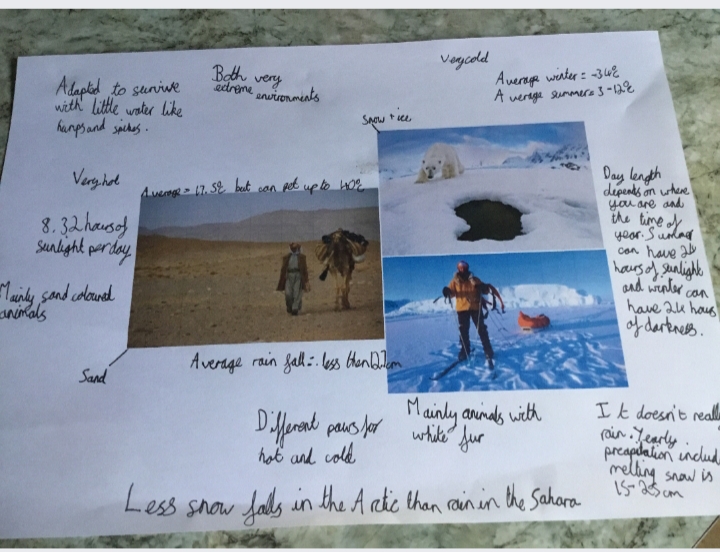 Adapted to survive
with little water like
humps and spikes.
Both very
extreme environments
Very cold
Average winter = -34°C
Average summer = 3-12°C
Snow + ice
Very hot
Average = 17.5°C but can get up to 40°C
8.32 hours of
sunlight per day
Mainly sand coloured
animals
Sand
Average rain fall = . less then 127cm
Day length
depends on where
you are and
the time of
year. Summer
can have 24
hours of sunlight
and winter can
have 24 hours
of darkness.
Different paws for
hot and cold
Mainly animals with
white fur
It doesn't really
rain. Yearly
precapitation includ
melting snow is
15-25cm
Less snow falls in the Arctic than rain in the Sahara